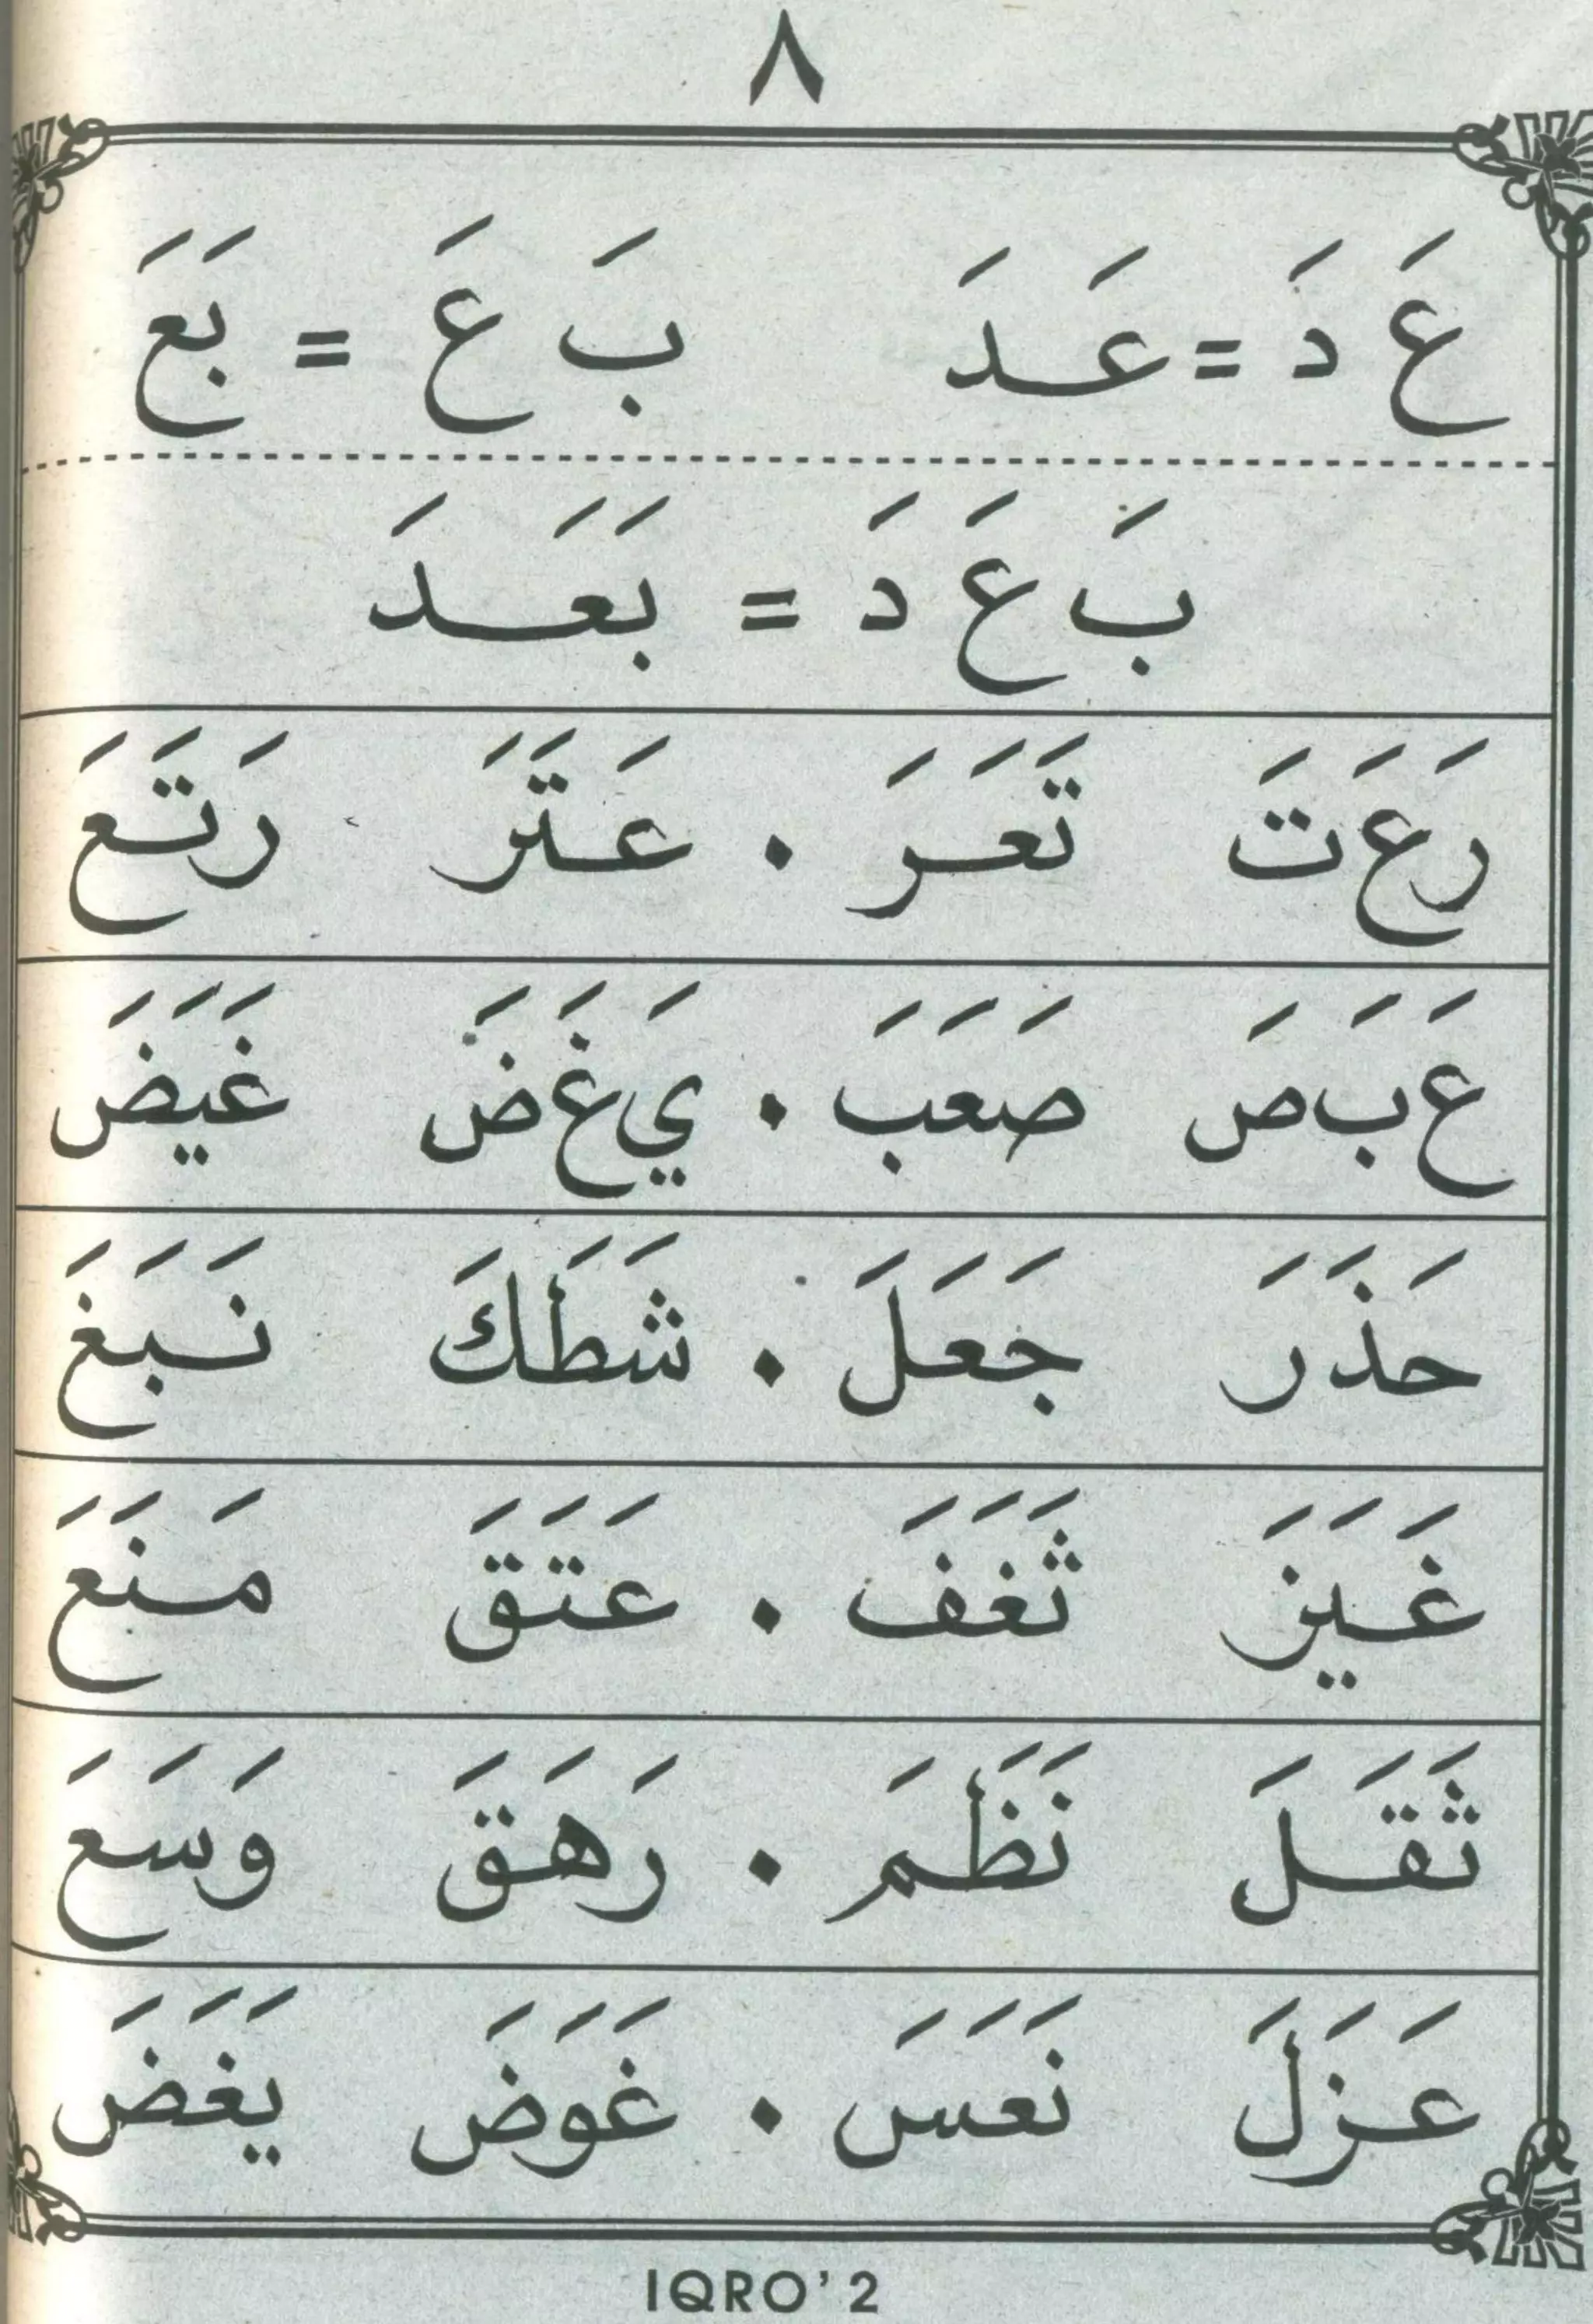 ٨
عَ دَ = عَدَ بَ عَ = بَعَ
بَ عَ دَ = بَعَدَ
رَعَتَ تَعَرَ . عَتَرَ رَتَعَ
عَبَصَ صَعَبَ . يَغَضَ غَيَضَ
حَذَرَ جَعَلَ . شَطَكَ نَبَغَ
غَيَزَ ثَغَفَ . عَتَقَ مَنَعَ
ثَقَلَ نَظَمَ . رَهَقَ وَسَعَ
عَزَلَ نَعَسَ . غَوَضَ يَغَضَ
IQRO' 2